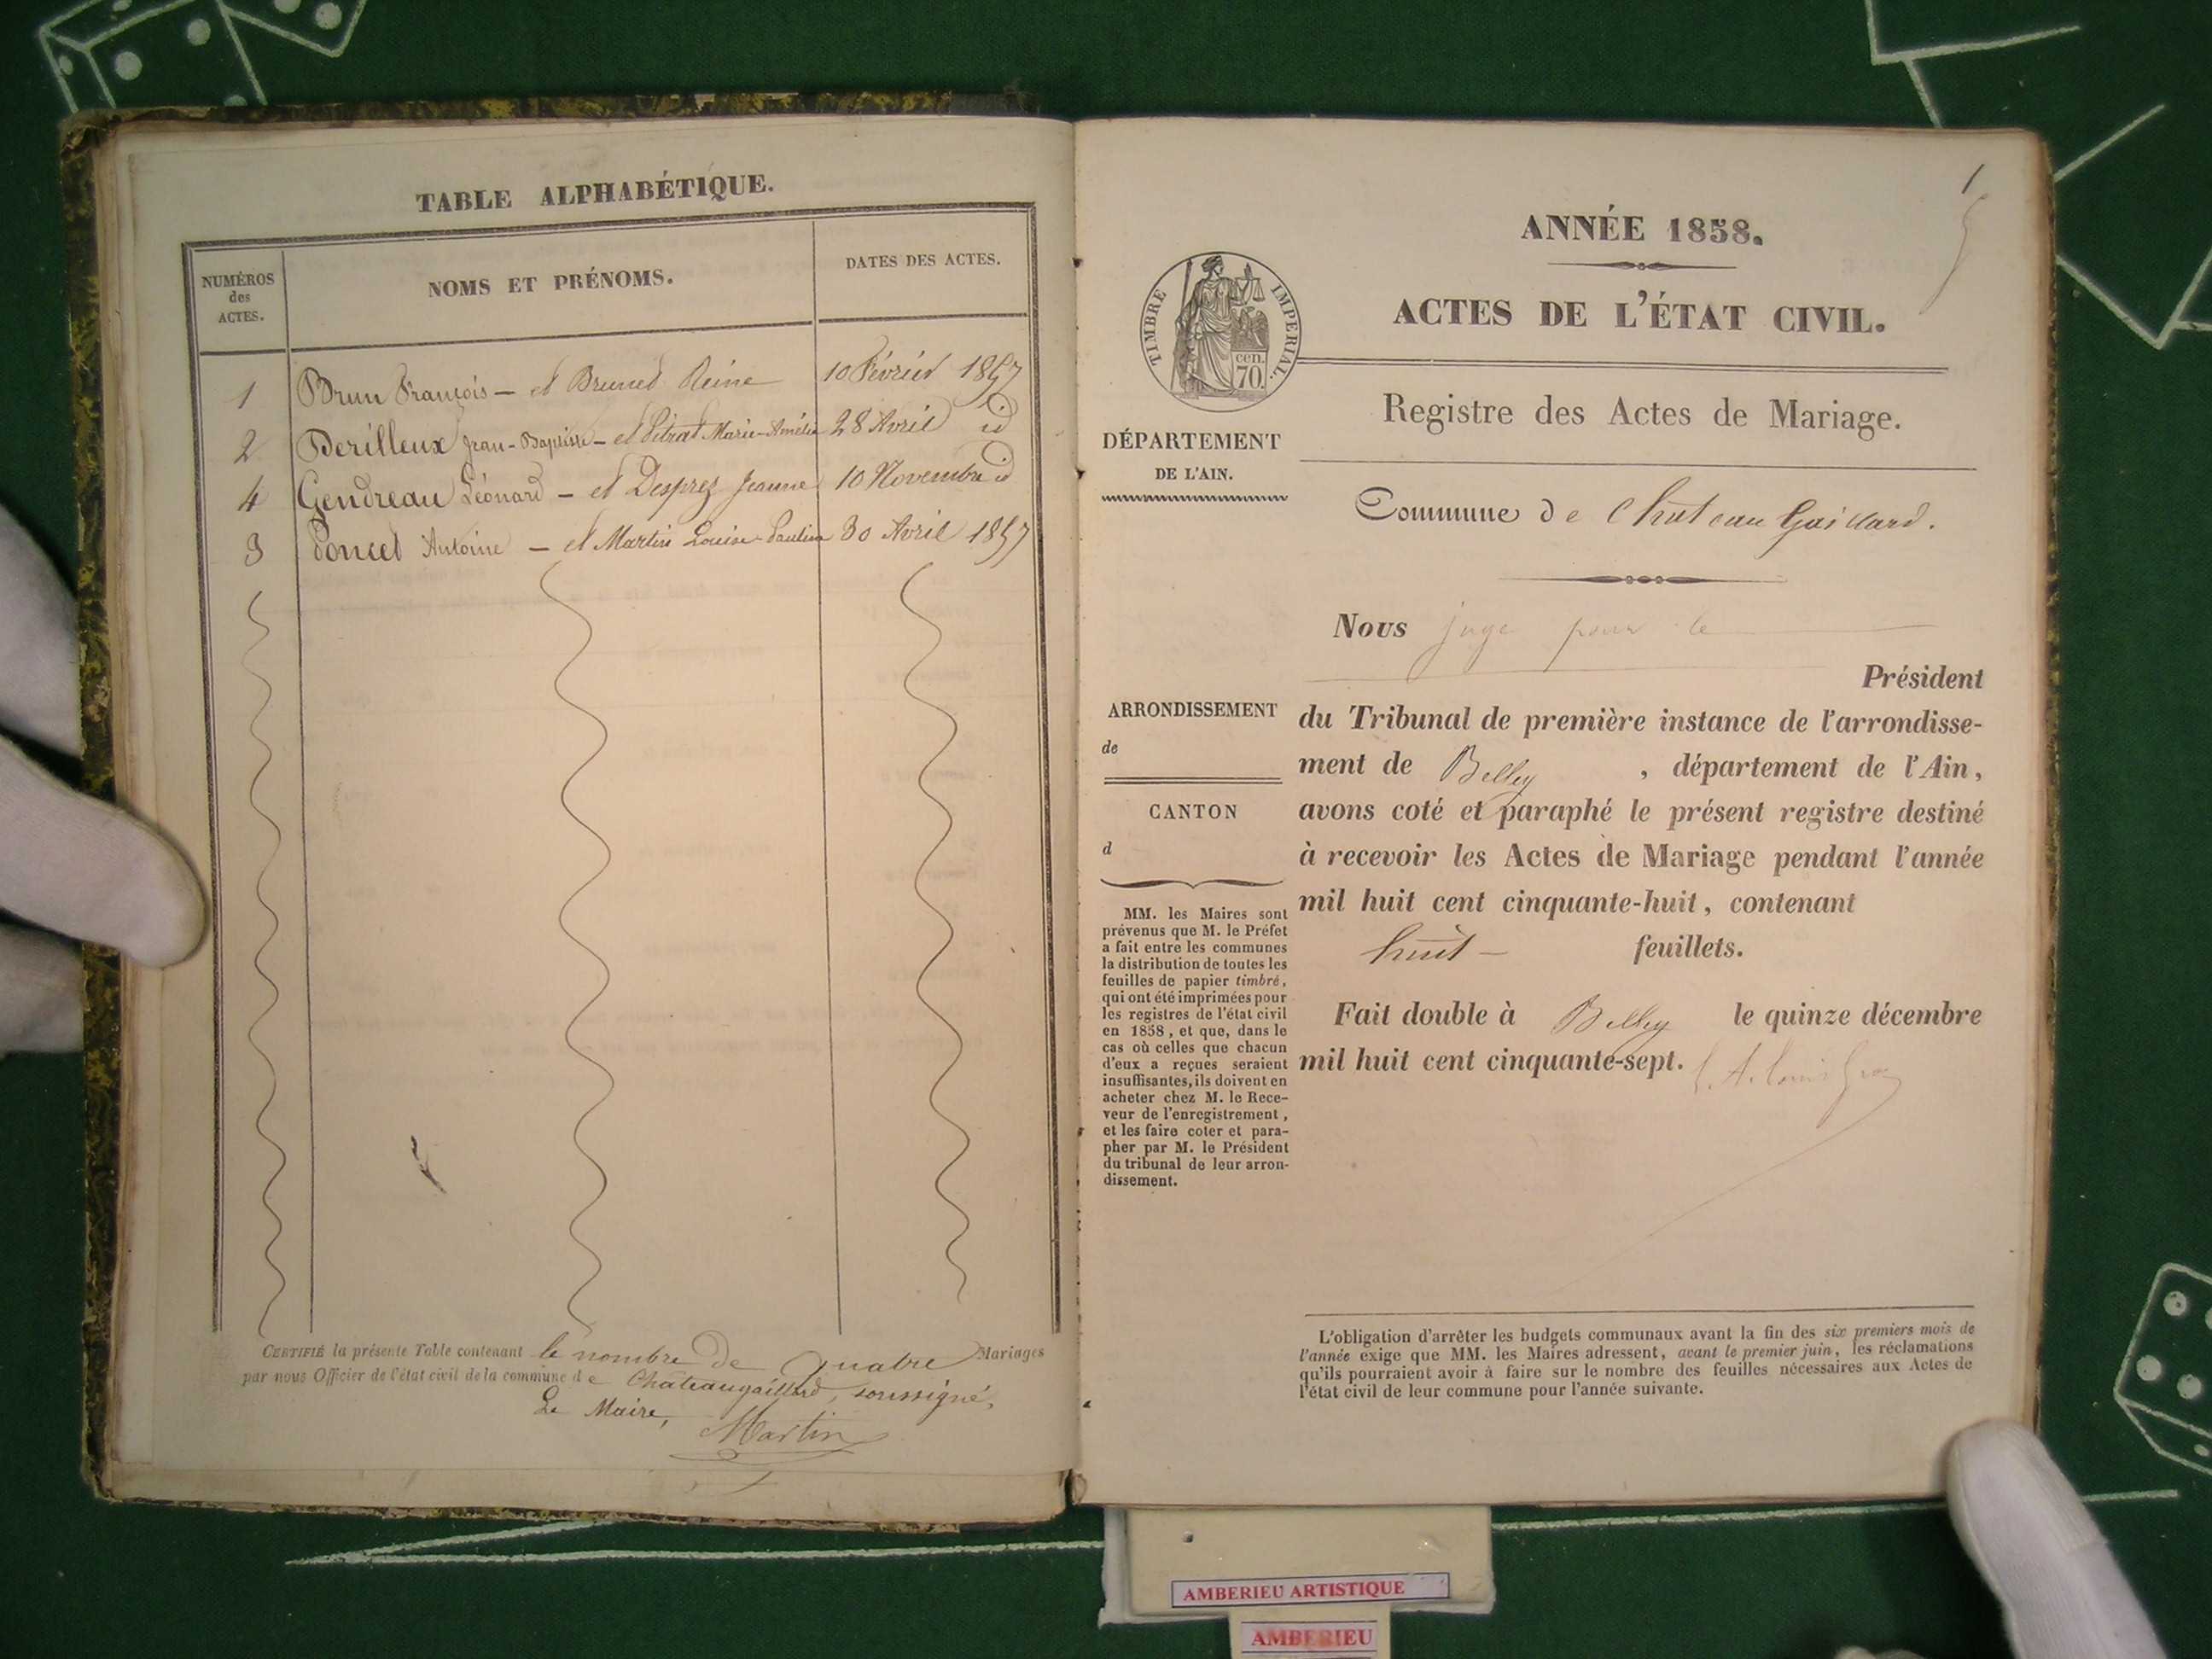 TABLE ALPHABÉTIQUE.
NUMÉROS des ACTES.
NOMS ET PRÉNOMS.
DATES DES ACTES.
1 Brun François — et Brunet Reine 10 Février 1857
2 Derilleux Jean-Baptiste — et Pitrat Marie-Amélie 28 Avril id
4 Gendreau Léonard — et Desprez Jeanne 10 Novembre id
3 Poncet Antoine — et Martin Louise-Pauline 30 Avril 1857
CERTIFIÉ la présente Table contenant le nombre de Quatre Mariages
par nous Officier de l'état civil de la commune de Châteaugaillard, soussigné,
Le Maire,
Martin
1
ANNÉE 1858.
ACTES DE L'ÉTAT CIVIL.
TIMBRE IMPÉRIAL.
cen.
70.
Registre des Actes de Mariage.
DÉPARTEMENT
DE L'AIN.
Commune de Chateau Gaillard.
Nous juge pour le
Président
ARRONDISSEMENT
de
CANTON
d
du Tribunal de première instance de l'arrondisse-
ment de Belley , département de l'Ain,
avons coté et paraphé le présent registre destiné
à recevoir les Actes de Mariage pendant l'année
mil huit cent cinquante-huit, contenant
huit — feuillets.
Fait double à Belley le quinze décembre
mil huit cent cinquante-sept.
MM. les Maires sont
prévenus que M. le Préfet
a fait entre les communes
la distribution de toutes les
feuilles de papier timbré,
qui ont été imprimées pour
les registres de l'état civil
en 1858, et que, dans le
cas où celles que chacun
d'eux a reçues seraient
insuffisantes, ils doivent en
acheter chez M. le Rece-
veur de l'enregistrement,
et les faire coter et para-
pher par M. le Président
du tribunal de leur arron-
dissement.
L'obligation d'arrêter les budgets communaux avant la fin des six premiers mois de
l'année exige que MM. les Maires adressent, avant le premier juin, les réclamations
qu'ils pourraient avoir à faire sur le nombre des feuilles nécessaires aux Actes de
l'état civil de leur commune pour l'année suivante.
AMBERIEU ARTISTIQUE
AMBERIEU